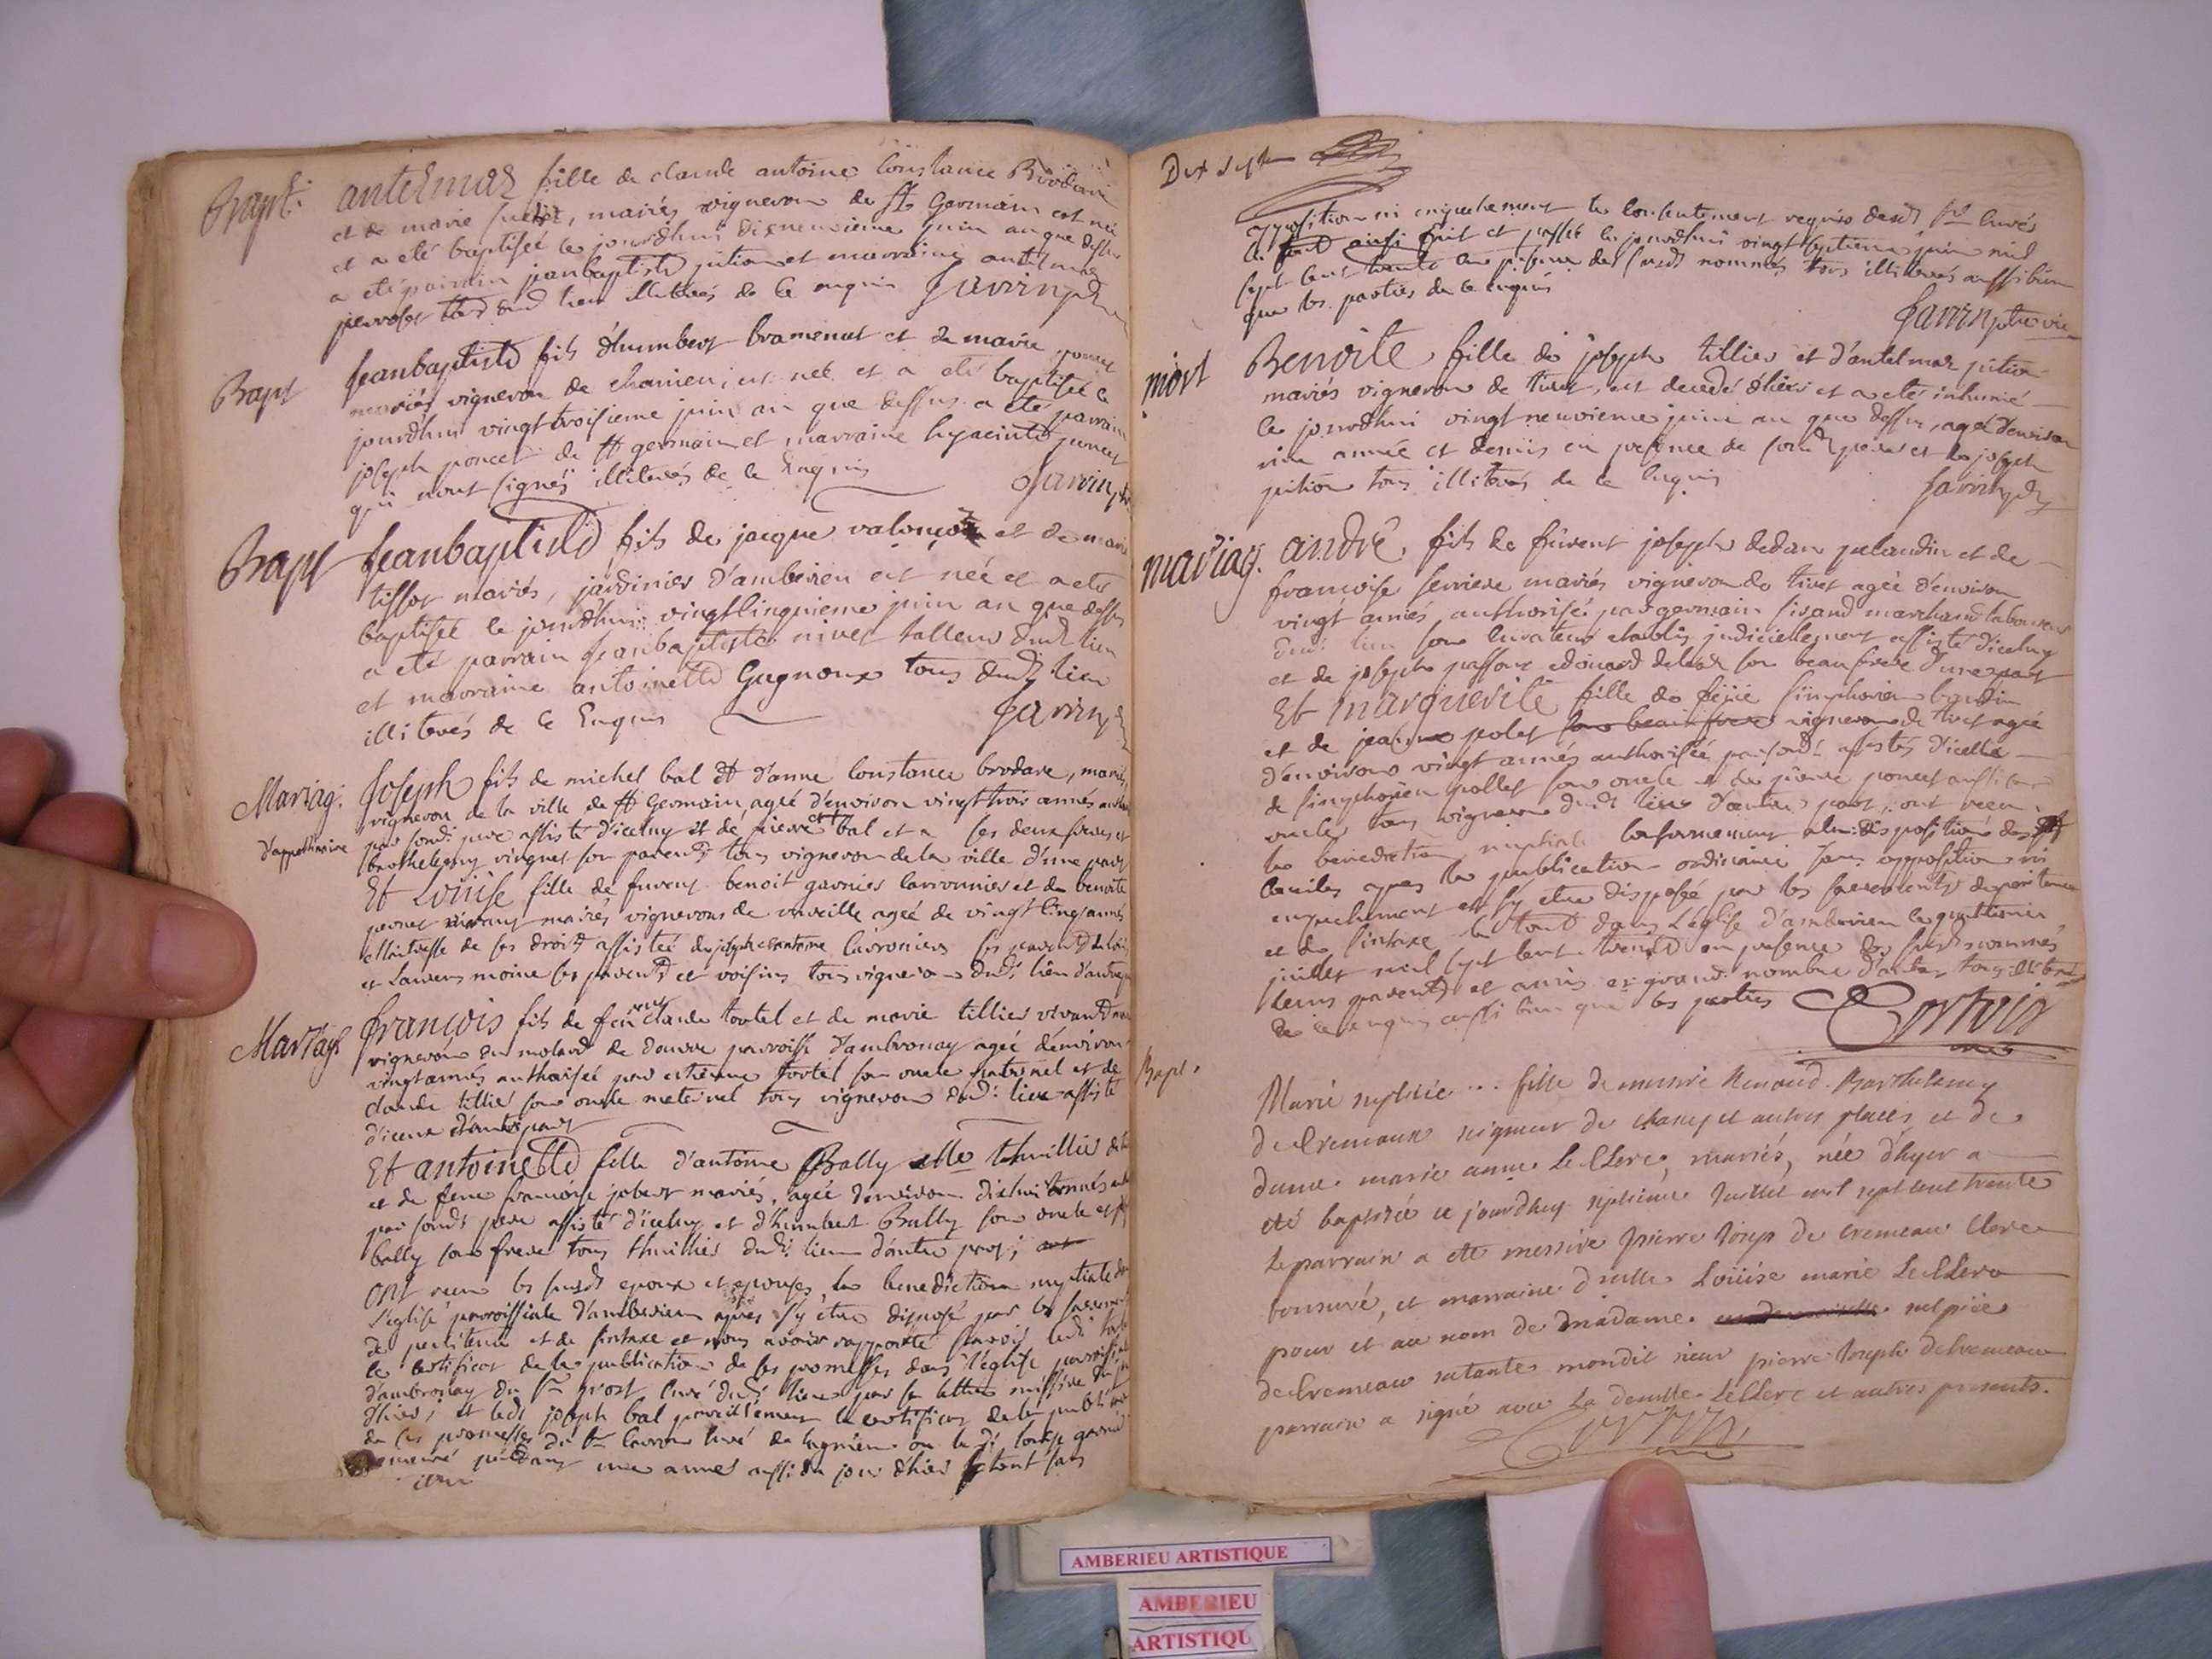 Bapt: antelmaz fille de claude antoine Constance Brodare
et de marie, mariés vigneron de St Germain est née
et a eté baptiseé le jourdhui dixneuvieme juin an que dessus
a eté parrain jeanbaptiste jution et marraine antelmaz
illiterés de ce enquis Jarrin ptre
Bapt Jeanbaptiste fils d'humbert bramenut et de marie poncet
mariés vigneron de est neé et a eté baptiseé ce
jourdhui vingt troisieme juin an que dessus a eté parrain
joseph poncet de St germain et marraine hyacinte poncet
qui n'ont signés illiterés de ce Enquis Jarrin ptre
Bapt Jeanbaptiste fils de jacque et de marie
tissot mariés, jardinier d'amberieu est neé et a eté
baptiseé le jourdhui vingt cinquieme juin an que dessus
a eté parrain jeanbaptiste nivet tailleur dudt lieu
et marraine antoinette Gagnoux tous dudt lieu
illiterés de ce Enquis Jarrin
Mariag: Joseph fils de michel bal et d'anne Constance brodare, mariés,
vigneron de la ville de St Germain, ageé d'environ vingt trois anneés
par sondt pere assisté d'iceluy et de pierre bal et ses deux freres et
parents tous vigneron de la ville d'une part
Et Louise fille de furent benoit garnier et de benoite
poncet mariés vignerons de vareille ageé de vingt cinq anneés
Maitresse de ses droits assisteé
et Laurens moine ses parents et voisins tous vigneron dudt lieu d'autre part
Mariage françois fils de feu claude tortel et de marie tillier vivants
vigneron du molard de douvre parroisse d'ambronay ageé d'environ
vingt anneés authoriseé par estienne tortel son oncle paternel et de
claude tillier son oncle maternel tous vigneron dudt lieu assisté
d'iceux d'autre part
Et antoinette fille d'antoine Bally thuillier
et de feue françoise jobert mariés, ageé d'environ dixhuit anneés
par sondt pere assisté d'iceluy et d'humbert Bally son oncle et
bally son frere tous thuillier dudt lieu d'autre part;
ont receu les susdts epoux et epouses, la benediction nuptiale dans
l'eglise parroissiale d'amberieu apres s'y etre disposé par les sacrements
de penitence et de sintaxe et nous avoir rapporté sçavoir ledt tortel
le certificat de la publication de ses promesses dans l'eglise parroissiale
d'ambronay du Sr grost curé dudt lieu par sa lettre missive
d'hier; et ledt joseph bal pareillement le certificat de la publication
de ses promesses du Sr curé de lagnieu ou ladt louise garnier
demeuré pendant une anneé aussi du jour d'hier le tout sans
Dix sept
opposition ni empechement le consentement requis desdts Srs Curés
le tout ainsi fait et passé le jourdhui vingt septieme juin mil
sept cent trente en presence des susdts nommés tous illiterés aussi bien
que les parties de ce enquis
Jarrin ptre vic
mort Benoite fille de joseph tillier et d'antelmaz jution
mariés vigneron de tiret, est decedé d'hier et a eté inhumé
le jourdhui vingt neuvieme juin an que dessus, ageé d'environ
une anneé et demis en presence de sondt pere et de joseph
jution tous illiterés de ce Enquis Jarrin ptre
mariag. andré, fils de furent joseph dedan palandin et de
françoise serriere mariés vigneron de tiret ageé d'environ
vingt anneés authorisé par germain sirand marchand laboureur
dudt lieu son curateur etablis judiciellement assisté d'iceluy
et de joseph passone edouard deleaz son beaufrere d'une part
Et marguerite fille de feüe simphorien bardin
et de jeanne polet son beaufrere vigneron de tiret ageé
d'environ vingt anneés authoriseé par sondt assistés d'icelle
de simphorien pollet son oncle et de pierre poncet aussi son
oncle tous vigneron dudt lieu d'autre part; ont receu
la benediction nuptiale conformement aux dispositions des
civiles apres la publication ordinaire sans opposition ni
empechement et s'y etre disposé par les sacrements de penitence
et de sintaxe le tout dans l'eglise d'amberieu le quattrieme
juillet mil sept cent trente en presence des susdts nommés
leurs parents et amis en grand nombre d'autres tous illiterés
de ce enquis aussi bien que les parties Cortois
Bapt. Marie sulpice ... fille de messire Renaud Barthelemy
de Cremeaux seigneur de chazey et autres places, et de
dame marie anne Le Clerc, mariés, née d'hyer a
eté baptisée ce jourdhuy septième Juillet mil sept cent trente
le parrain a ete messire pierre Joseph de cremeau Clerc
tonsuré, et marraine dselle Loüise marie LeClerc
pour et au nom de madame mademoiselle sulpice
de Cremeau sa tante mondit sieur pierre Joseph deCremeau
parrain a signé avec La demlle LeClerc et autres presents.
Cortois
AMBERIEU ARTISTIQUE
AMBERIEU
ARTISTIQU